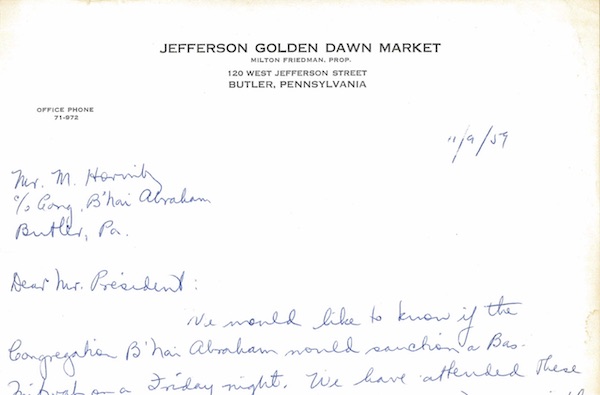 JEFFERSON GOLDEN DAWN MARKET
MILTON FRIEDMAN, PROP.
120 WEST JEFFERSON STREET
BUTLER, PENNSYLVANIA
OFFICE PHONE
71-972
11/9/59
Mr. M. Horwitz
c/o Cong. B'nai Abraham
Butler, Pa.
Dear Mr. President:
We would like to know if the
Congregation B'nai Abraham would sanction a Bas-
Mitzvah on a Friday night. We have attended these